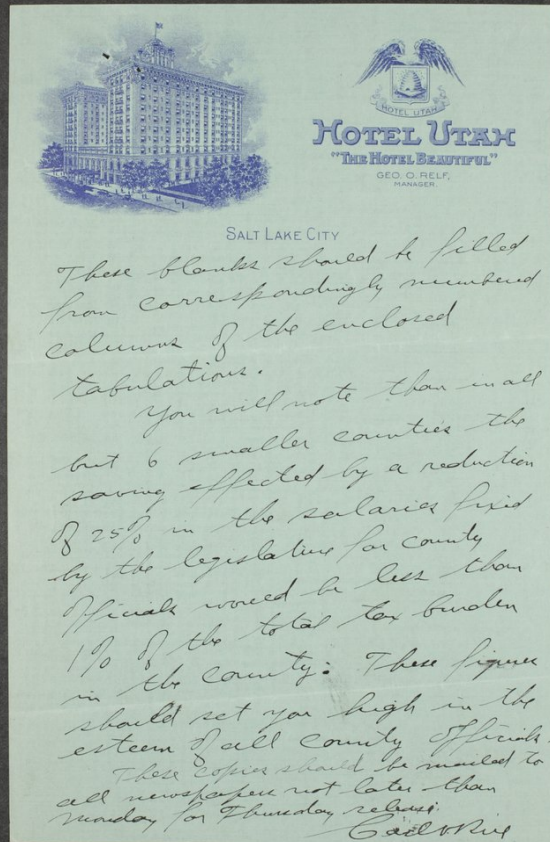 HOTEL UTAH
HOTEL UTAH
"THE HOTEL BEAUTIFUL"
GEO. O. RELF,
MANAGER.
SALT LAKE CITY
These blanks should be filled
from correspondingly numbered
columns of the enclosed
tabulations.
You will note than in all
but 6 smaller counties the
saving effected by a reduction
of 25% in the salaries fixed
by the legislature for county
officials would be less than
1% of the total tax burden
in the county. These figures
should set you high in the
esteem of all county officials.
These copies should be mailed to
all newspapers not later than
Monday for Thursday release.